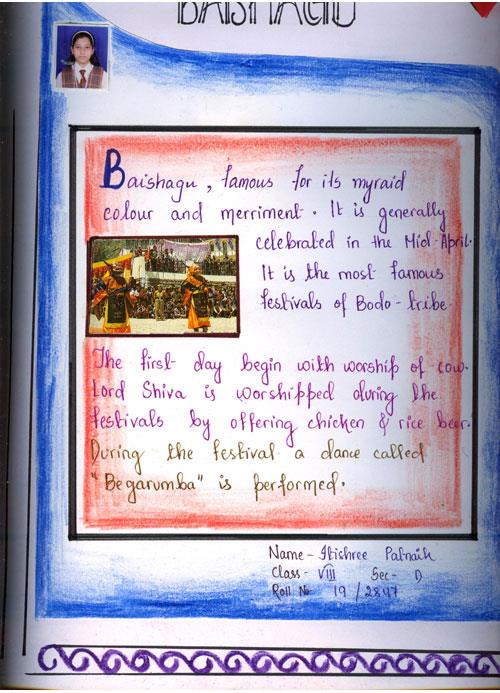 BAISHAGU
Baishagu, famous for its myraid
colour and merriment. It is generally
celebrated in the Mid-April.
It is the most famous
festivals of Bodo-tribe.
The first day begin with worship of cow.
Lord Shiva is worshipped during the
festivals by offering chicken & rice beer.
During the festival a dance called
"Begarumba" is performed.
Name - Itichree Patnaik
Class - VIII Sec - D
Roll No 19/2847